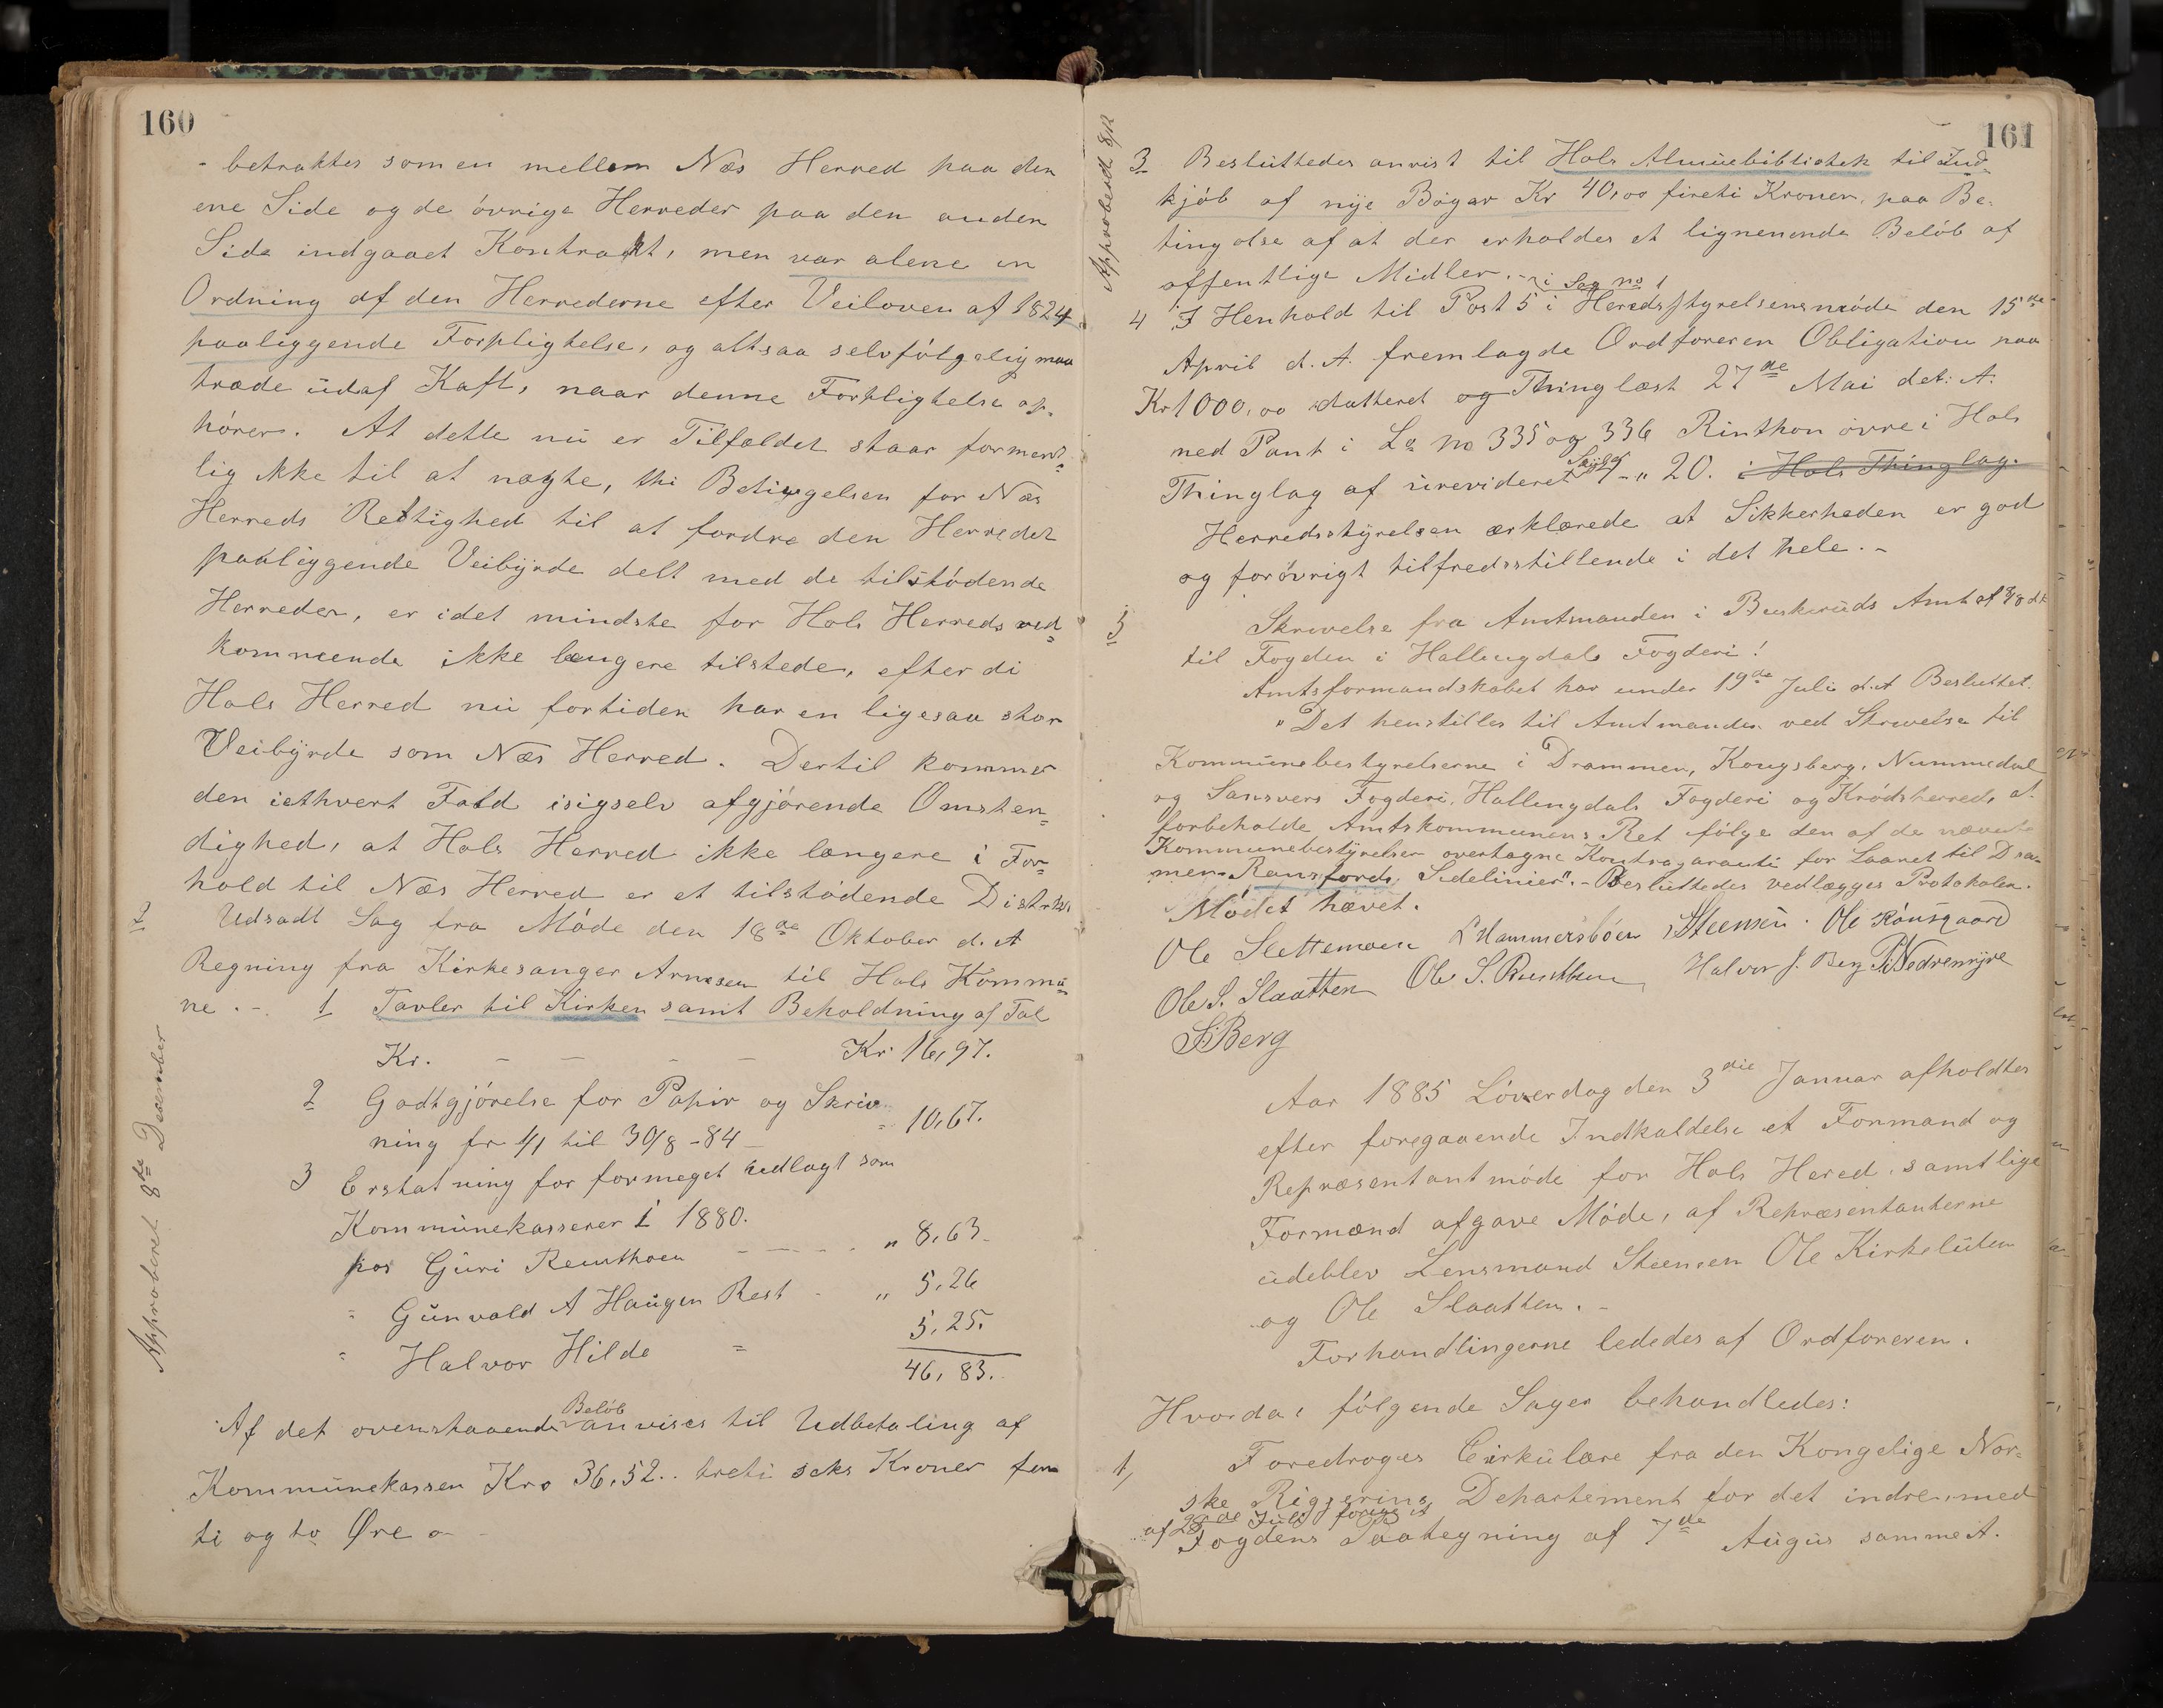 160
- betraktes som en mellem Næs Herred paa den
ene Side og de óvrige Herreder paa den anden
Side indgaaet Kontrakt, men var alene en
Ordning af den Herrederne efter Veiloven af 1824
paaliggende Forpligtelse, og altsaa selvfólgelig maa
træde ud af Kaft, naar denne Forpligtelse op-
hórer. At dette nu er Tilfældet staar forment-
lig ikke til at nægte, thi Betingelsen for Næs
Herreds Rettighed til at fordre den Herredet
paaliggende Veibyrde delt med de tilstódende
Herreder, er idet mindste for Hols Herreds ved=
kommende ikke længere tilstede, efter di
Hols Herred nu fortiden har en ligesaa stor
Veibyrde som Næs Herred. Dertil kommer
den iethvert Fald isigselv afgjórende Omsten=
dighed, at Hols Herred ikke længere i For=
hold til Næs Herred er et tilstódende Distrikt.
2 Udsadt Sag fra Móde den 18de Oktober d. A
Regning fra Kirkesanger Arnesen til Hols Kommu=
ne . -. 1 Tavler til Kirken samt Beholdning af Tal
Kr. - - - - Kr 16,97.
2 Godtgjórelse for Papir og Skriv
ning fr 1/1 til 30/8 -84 - " 10,67.
3 Erstatning for formeget udlagt som
Kommunekasserer i 1880.
for Guri Reinthoen - - - - " 8,63-
" Gunvald A Haugen Rest - " 5,26
" Halvor Hilde = 5,25.
46,83.
Approberet 8de December
Beløb
Af det ovenstaaende anvises til Udbetaling af
Kommunekassen Kro 36,52.. treti seks Kroner fem
ti og to Øre -
161
Approberet 8/12
3 Besluttedes anvist til Hols Almuebibliotek til Ind
kjób af nye Bóger Kr 40,00 fireti Kroner, paa Be-
tingelse af at der erholdes et lignenende Belób af
offentlige Midler. -
i Sag no 1
4 I Henhold til Post 5 i Heredsstyrelsensmóde den 15de
April d. A. fremlagde Ordfóreren Obligation paa
Kr 1000,00 datteret og Thinglæst 27de Mai det: A.
med Pant i La no 335 og 336 Rinthon óvre i Hols
Thinglag af urevideret Skyld - " 20. i Hols Thinglag.
Herredsstyrelsen ærklærede at Sikkerheden er god
og foróvrigt tilfredsstillende i det hele. -
5 Skrivelse fra Amtmanden i Buskeruds Amt af
til Fogden i Hallingdals Fogderi!
Amtsformandskabet har under 19de Juli d. A Besluttet.
"Det henstilles til Amtmanden ved Skrivelse til
Kommunebestyrelserne i Drammen, Kongsberg, Nummedal
og Sansvers Fogderi, Hallingdals Fogderi og Kródsherred, at
forbeholde Amtskommunens Ret fólge den af de nævnte
Kommunebestyrelser overtagne Kontragaranti for Laanet til Dra-
men-Ransfjords Sidelinier". - Besluttedes vedlægges Protokolen.
Módet hævet.
Ole Slettemoen L Hammersbóen Steensen. Ole Rónsgaard
Ole S. Slaatten Ole S. Runthun Halvor J. Berg Nedremyre
S Berg
Aar 1885 Lóverdag den 3die Januar afholdtes
efter foregaaende Indkaldelse et Formand og
Repræsentantmóde for Hols Hered. samtlige
Formænd afgave Móde, af Repræsentanterne
udeblev Lensmand Steensen Ole Kirkeluten
og Ole Slaatten. -
Forhandlingerne lededes af Ordfóreren.
Hvorda, fólgende Sager behandledes:
1, Foredroges Cirkulære fra den Kongelige Nor=
ske Rigjerings Departement for det indre, med
af 28de Juli forige A
Fogdens Paategning af 7de Augus samme A.